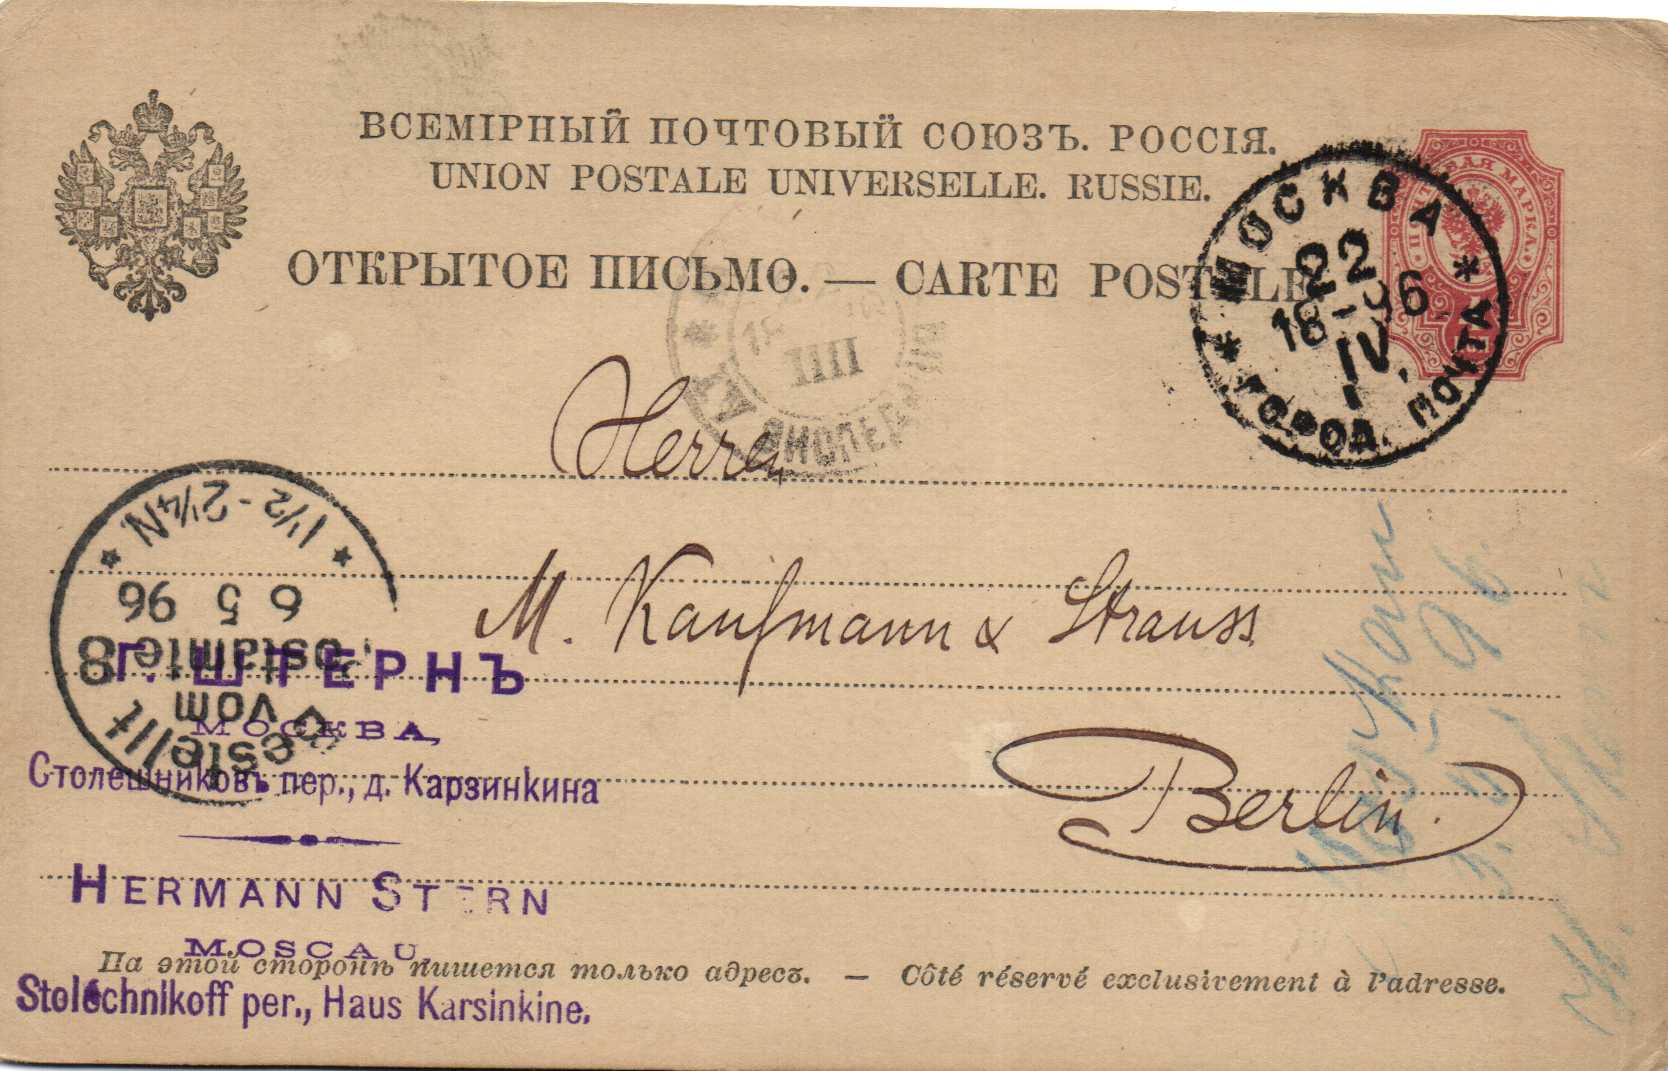 ВСЕМІРНЫЙ ПОЧТОВЫЙ СОЮЗЪ. РОССІЯ.
UNION POSTALE UNIVERSELLE. RUSSIE.
ОТКРЫТОЕ ПИСЬМО. — CARTE POSTALE
ПОЧТОВАЯ МАРКА
МОСКВА
22
18-96
IV.
1
ГОРОД. ПОЧТА
18
IIII
Herren
M. Kaufmann & Strauss
Berlin.
Bestellt
vom
Postamte 8
6 5 96
1½-2¼N
Г. ШТЕРНЪ
МОСКВА,
Столешниковъ пер., д. Карзинкина
HERMANN STERN
MOSCAU,
Stoléchnikoff per., Haus Karsinkine.
На этой сторонѣ пишется только адресъ. — Côté réservé exclusivement à l'adresse.